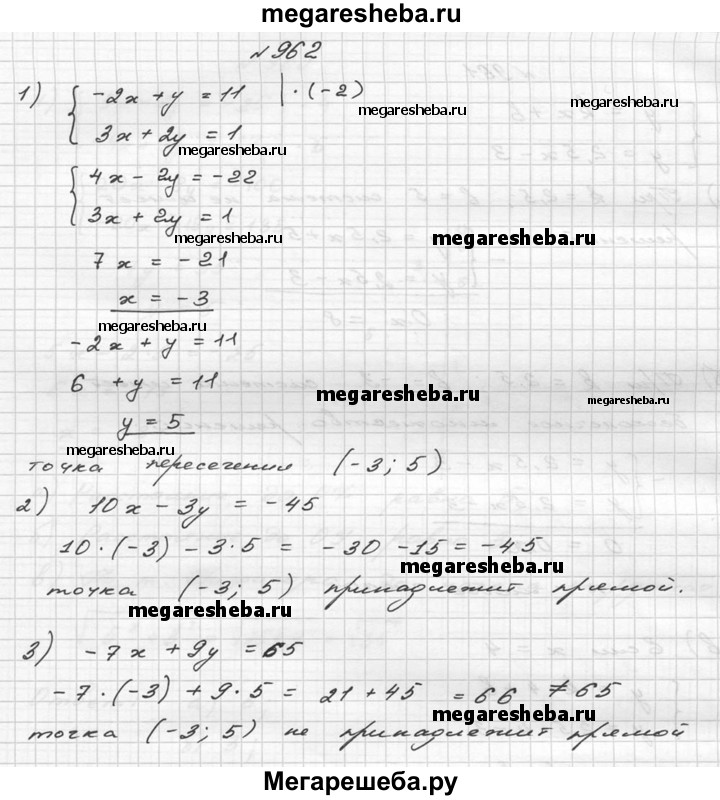 megaresheba.ru
№962
1) { -2x + y = 11 | · (-2)
megaresheba.ru
megaresheba.ru
3x + 2y = 1
megaresheba.ru
{ 4x - 2y = -22
3x + 2y = 1
megaresheba.ru
megaresheba.ru
7x = -21
x = -3
megaresheba.ru
-2x + y = 11
6 + y = 11
megaresheba.ru
megaresheba.ru
y = 5
megaresheba.ru
точка пересечения (-3; 5)
2) 10x - 3y = -45
10·(-3) - 3·5 = -30 -15 = -45
megaresheba.ru
точка (-3; 5) принадлежит прямой.
megaresheba.ru
3) -7x + 9y = 65
-7·(-3) + 9·5 = 21 + 45 = 66 ≠ 65
megaresheba.ru
точка (-3; 5) не принадлежит прямой
Мегарешеба.ру